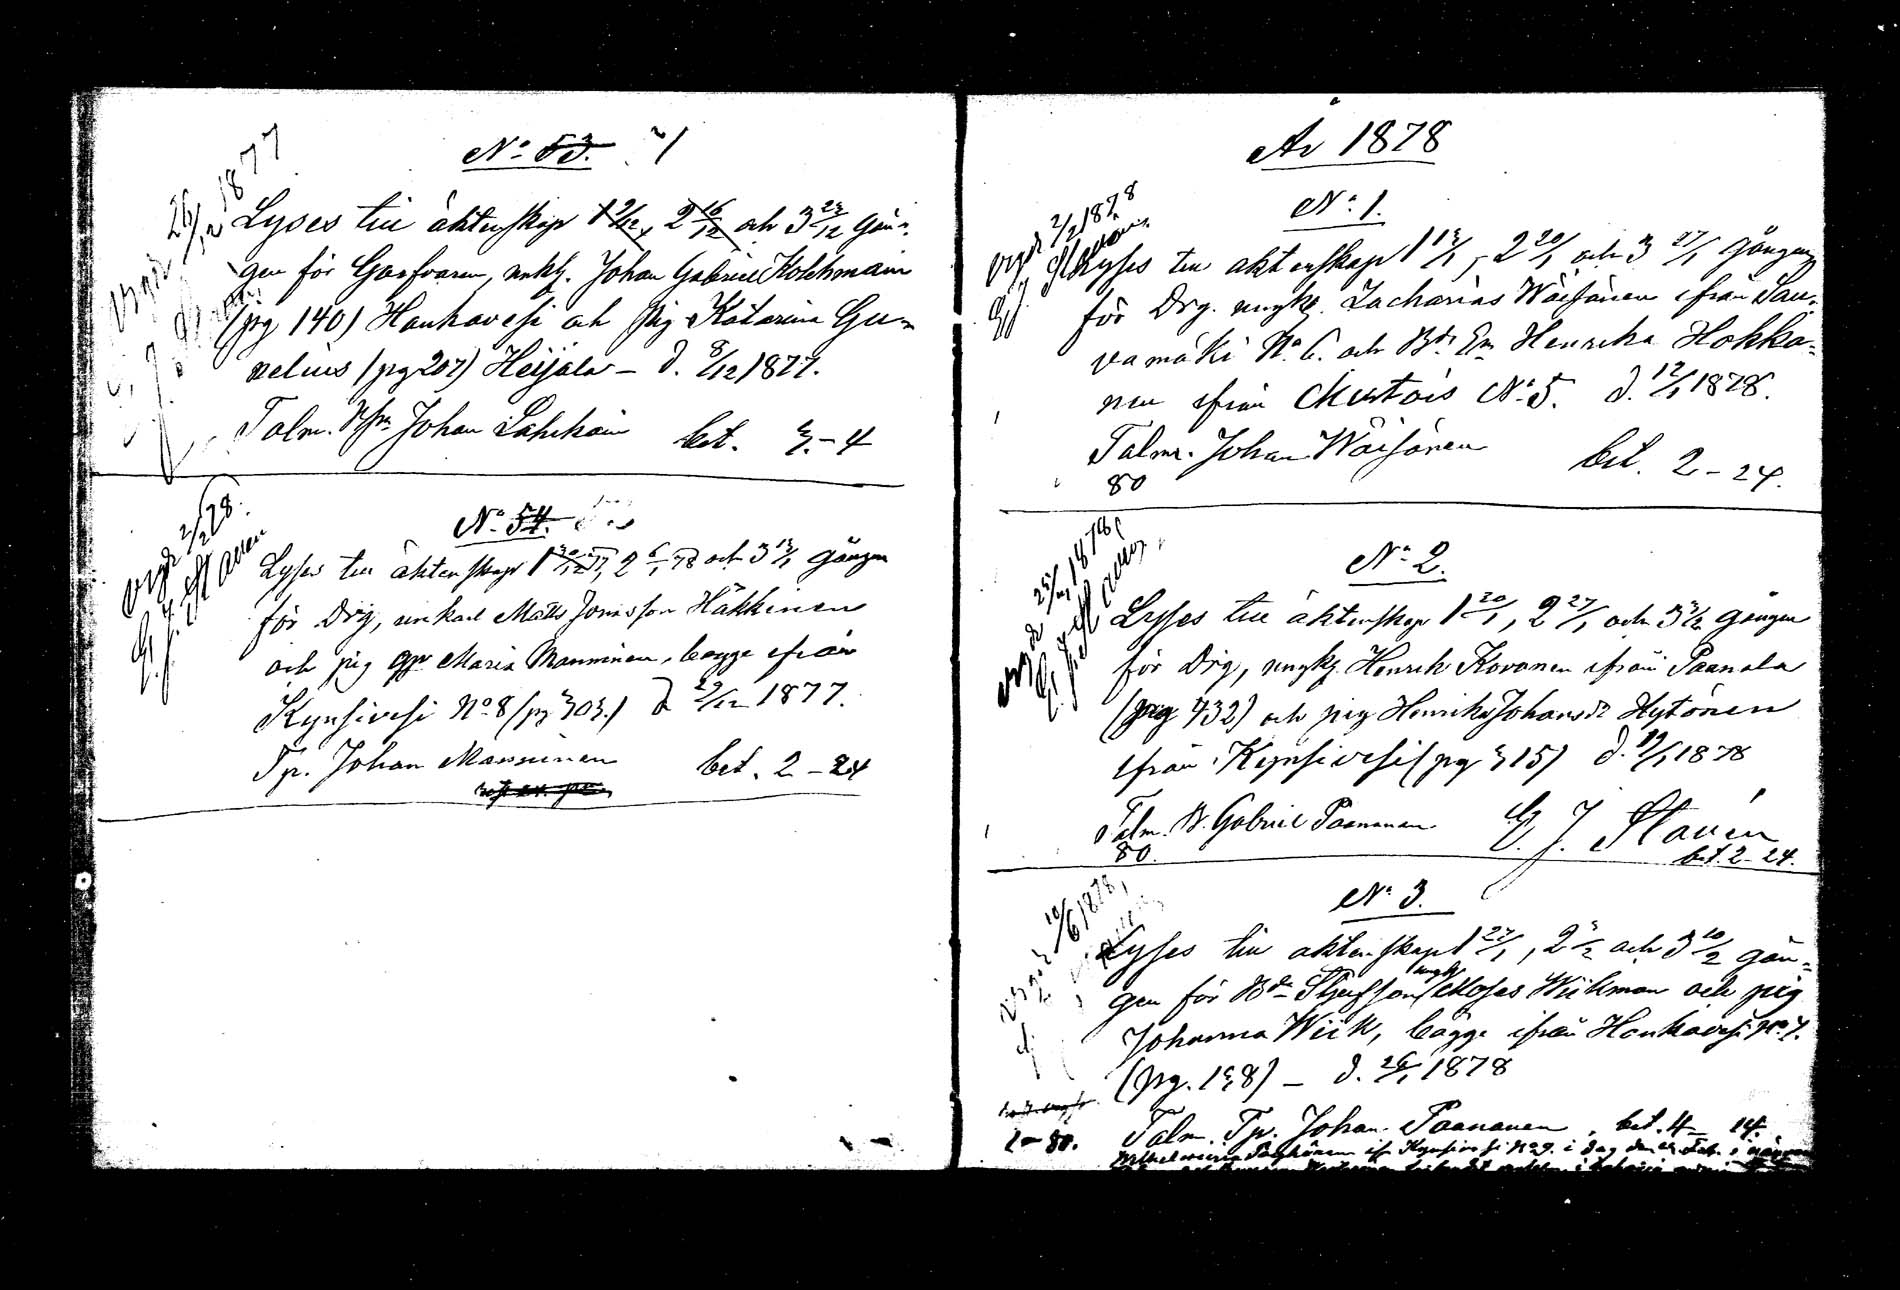 No 53.
Lyses till äktenskap 1 2/12, 2 16/12 och 3 23/12 gån-
gen för Garfvaren, unkk. Johan Gabriel Kolehmain
(pg 140) Hankavesi och pig Katarina Gu-
velius (pg 207) Heijala - d. 8/12 1877.
Talm. Johan Lapukain bet. 3.-4
26/12 1877
No 54.
Lyses till äktenskap 1 30/12 77, 2 6/1 78 och 3 13/1 gången
för Drg, unkarl Matts Jonasson Häkkinen
och pig Maria Manninen, begge ifrån
Kynsivesi No 8 (pg 303.) d 29/12 1877.
Tp. Johan Manninen bet. 2-24
vigde 2/2 78.
E. J. Staven
År 1878
No 1.
Lyses till äktenskap 1 13/1, 2 20/1 och 3 27/1 gången
för Drg. ungk. Zacharias Wäisänen ifrån Sau-
vamäki No 6. och Bdr Enk Henrika Hokka-
nen ifrån Mustois No 5. d. 12/1 1878.
Talm. Johan Wäisänen bet. 2-24.
80
vigde 2/2 1878
E. J. Staven
No 2.
Lyses till äktenskap 1 20/1, 2 27/1 och 3 3/2 gången
för Drg, ungk. Henrik Kovanen ifrån Paanala
(pag 432) och pig Henrika Johansdr Hytönen
ifrån Kynsivesi (pg 315) d. 19/1 1878
Talm. B. Gabriel Paananen E. J. Staven
80. bet. 2-24.
1878
No 3.
Lyses till äktenskap 1 27/1, 2 3/2 och 3 10/2 gån-
gen för Bde Styfson ungk Moses Wiikman och pig
Johanna Wiik, bägge ifrån Hankavesi No 7.
(pg. 138) - d. 26/1 1878
Talm. Tp. Johan Paananen. bet. 4 - 14.
10/6 1878,
2-80.